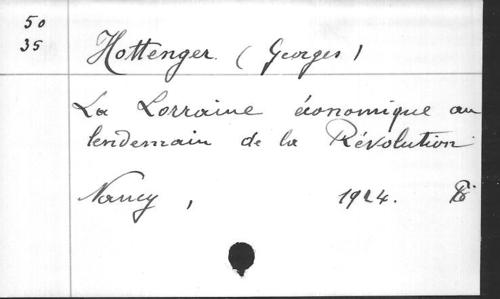 50
35
Hottenger. (Georges)
La Lorraine économique au
lendemain de la Révolution
Nancy, 1924. 8°